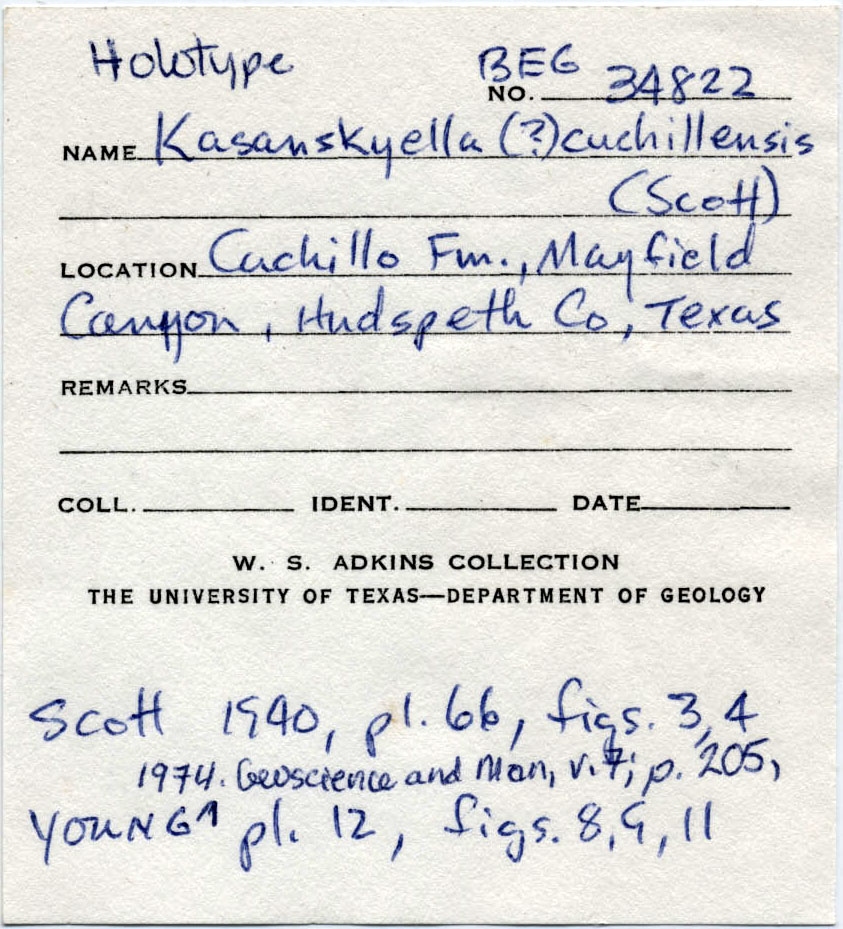 Holotype BEG
NO. 34822
NAME Kasanskyella (?) cuchillensis
(Scott)
LOCATION Cuchillo Fm., Mayfield
Canyon, Hudspeth Co, Texas
REMARKS
COLL. IDENT. DATE
W. S. ADKINS COLLECTION
THE UNIVERSITY OF TEXAS—DEPARTMENT OF GEOLOGY
Scott 1940, pl. 66, figs. 3,4
1974. Geoscience and Man, v.7; p. 205,
YOUNG^ pl. 12, figs. 8,9,11